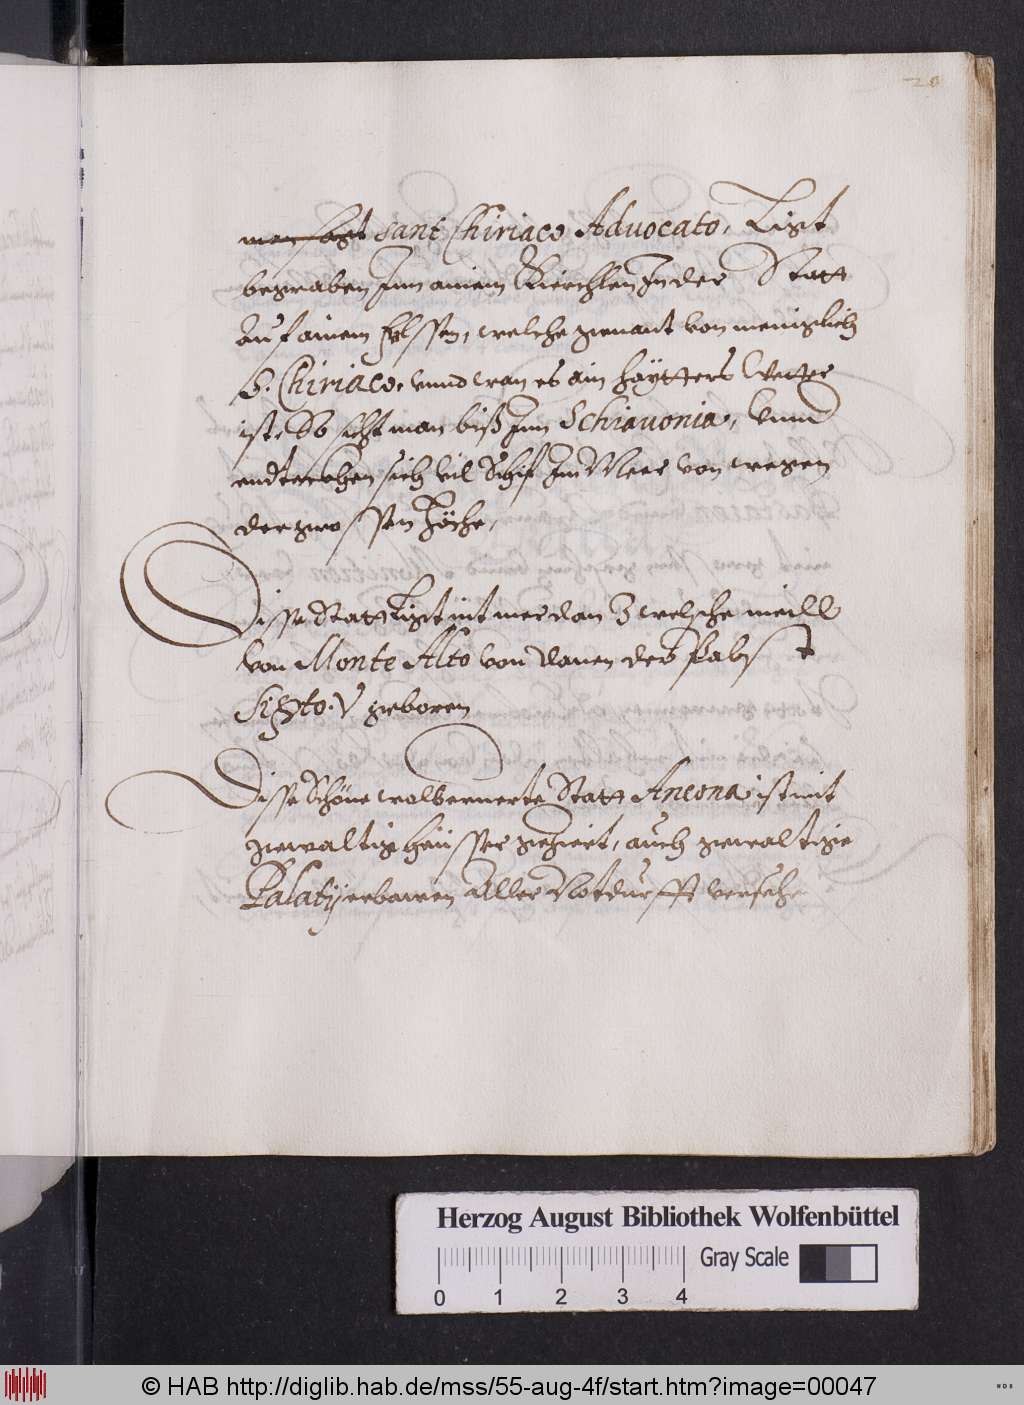 20
man sagt Sant Chiriaco Advocato, Ligt
begraben Inn ainem Kirchlen In der Statt
Auf ainem felssen, welche genant von meniglich
S. Chiriaco, vnnd wan es ain haytters Wetter
ist, So sicht man biß Inn Schiavonia, Vnnd
endteckhen sich vil Schif Im Meer von wegen
der grossen Höche,
Disse Statt Ligt nit mer dan 3 welsche meill
von Monte Alto von danen der Pabst
Sixto. V geboren
Disse Schöne wolbewerte Statt Ancona ist mit
gewaltig heüsser geziert, auch gewaltige
Palatij erbawen Aller Notdurfft versehe
Herzog August Bibliothek Wolfenbüttel
Gray Scale
0 1 2 3 4
© HAB http://diglib.hab.de/mss/55-aug-4f/start.htm?image=00047